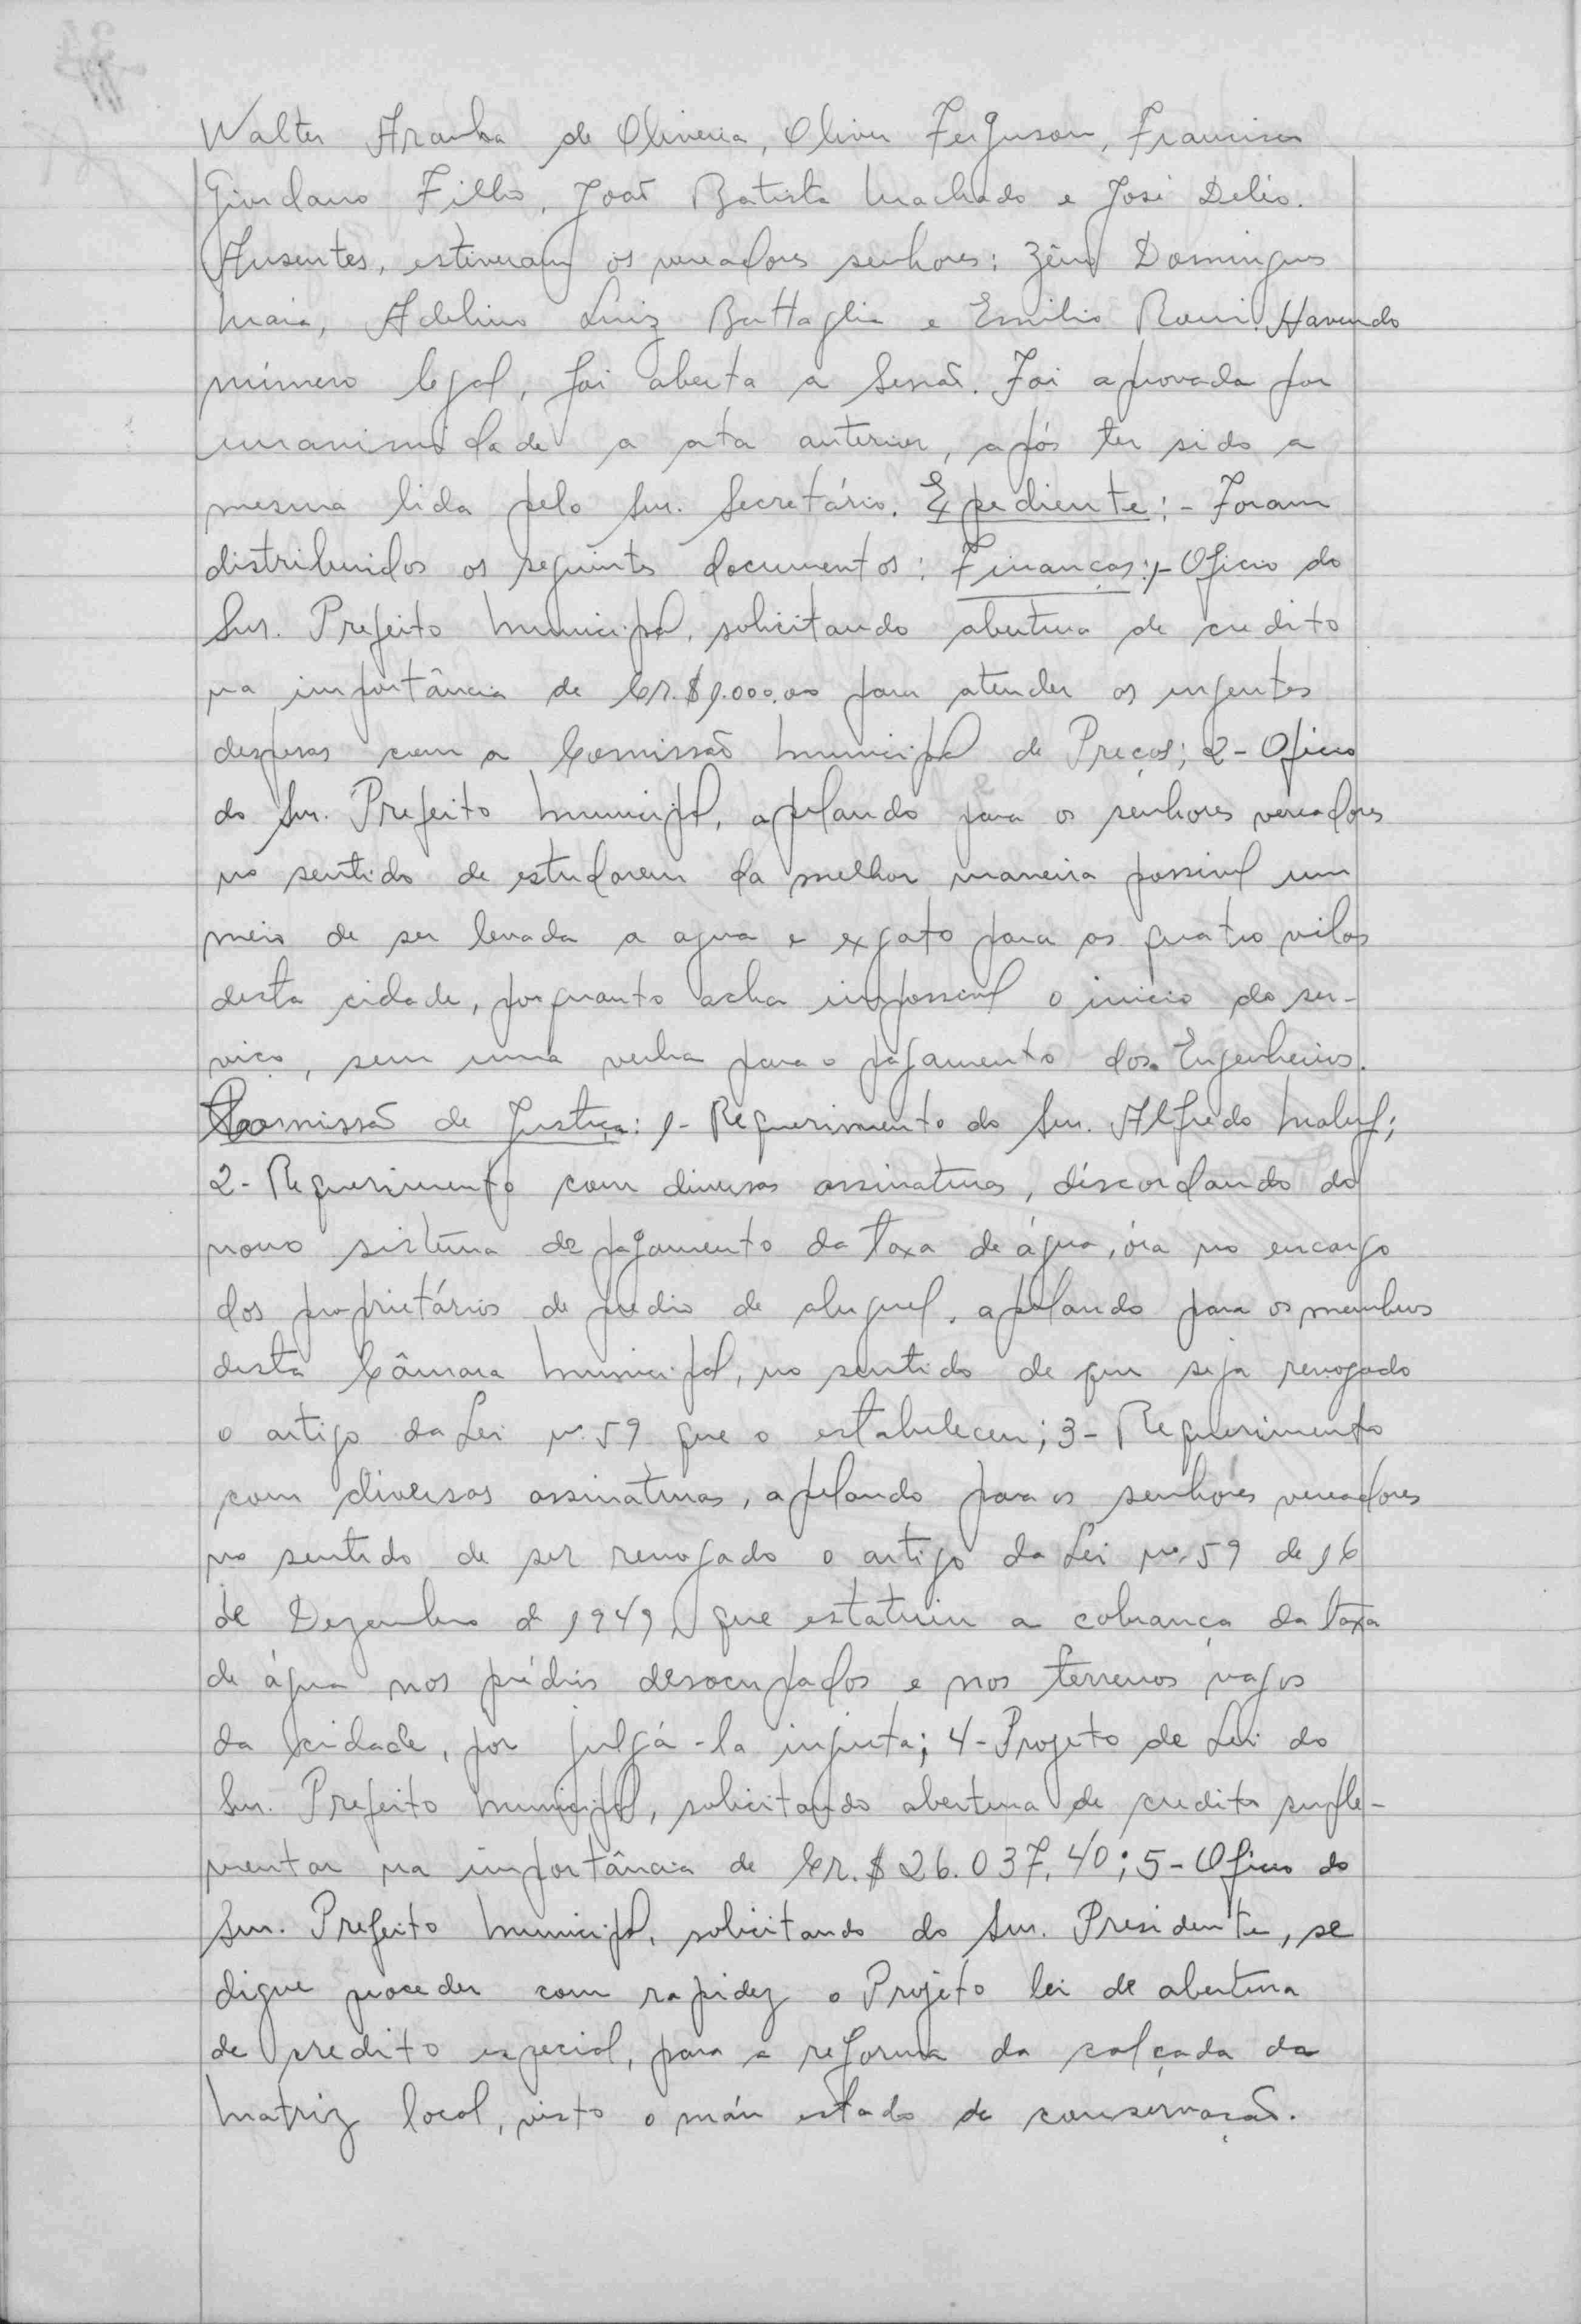 Walter Aranha de Oliveira, Oliver Ferguson, Francisco
Giordano Filho, João Batista Machado e José Delio.
Ausentes, estiveram os vereadores senhores: Zêno Domingues
Maia, Adelino Luiz Battaglia e Emilio Romi. Havendo
número legal, foi aberta a Sessão. Foi aprovada por
unanimidade a ata anterior, após ter sido a
mesma lida pelo Snr. Secretário. Expediente:- Foram
distribuidos os seguintes documentos: Finanças:1- Oficio do
Snr. Prefeito Municipal, solicitando abertura de credito
na importância de Cr.$1.000,00 para atender os urgentes
despesas com a Comissão Municipal de Preços; 2- Oficio
do Snr. Prefeito Municipal, apelando para os senhores vereadores
no sentido de estudarem da melhor maneira possivel um
meio de ser levada a agua e exgoto para as quatro vilas
desta cidade, porquanto acha impossivel o inicio do ser-
viço, sem uma verba para o pagamento dos Engenheiros.
Comissão de Justiça: 1- Requerimento do Snr. Alfredo Maluf;
2- Requerimento com diversas assinaturas, discordando do
novo sistema de pagamento da taxa de água, óra no encargo
dos proprietários de predio de aluguel, apelando para os membros
desta Câmara Municipal, no sentido de que seja revogado
o artigo da Lei nº 59 que o estabeleceu; 3- Requerimento
com diversas assinaturas, apelando para os senhores vereadores
no sentido de ser revogado o artigo da Lei nº 59 de 16
de Dezembro de 1949, que estatuiu a cobrança da taxa
de água nos prédios desocupados e nos terrenos vagos
da cidade, por julgá-la injusta; 4- Projeto de Lei do
Snr. Prefeito Municipal, solicitando abertura de credito suple-
mentar na importância de Cr.$ 26.037,40; 5- Oficio do
Snr. Prefeito Municipal, solicitando do Snr. Presidente, se
digne proceder com rapidez o Projeto lei de abertura
de credito especial, para a reforma da calçada da
Matriz local, visto o máu estado de conservação.